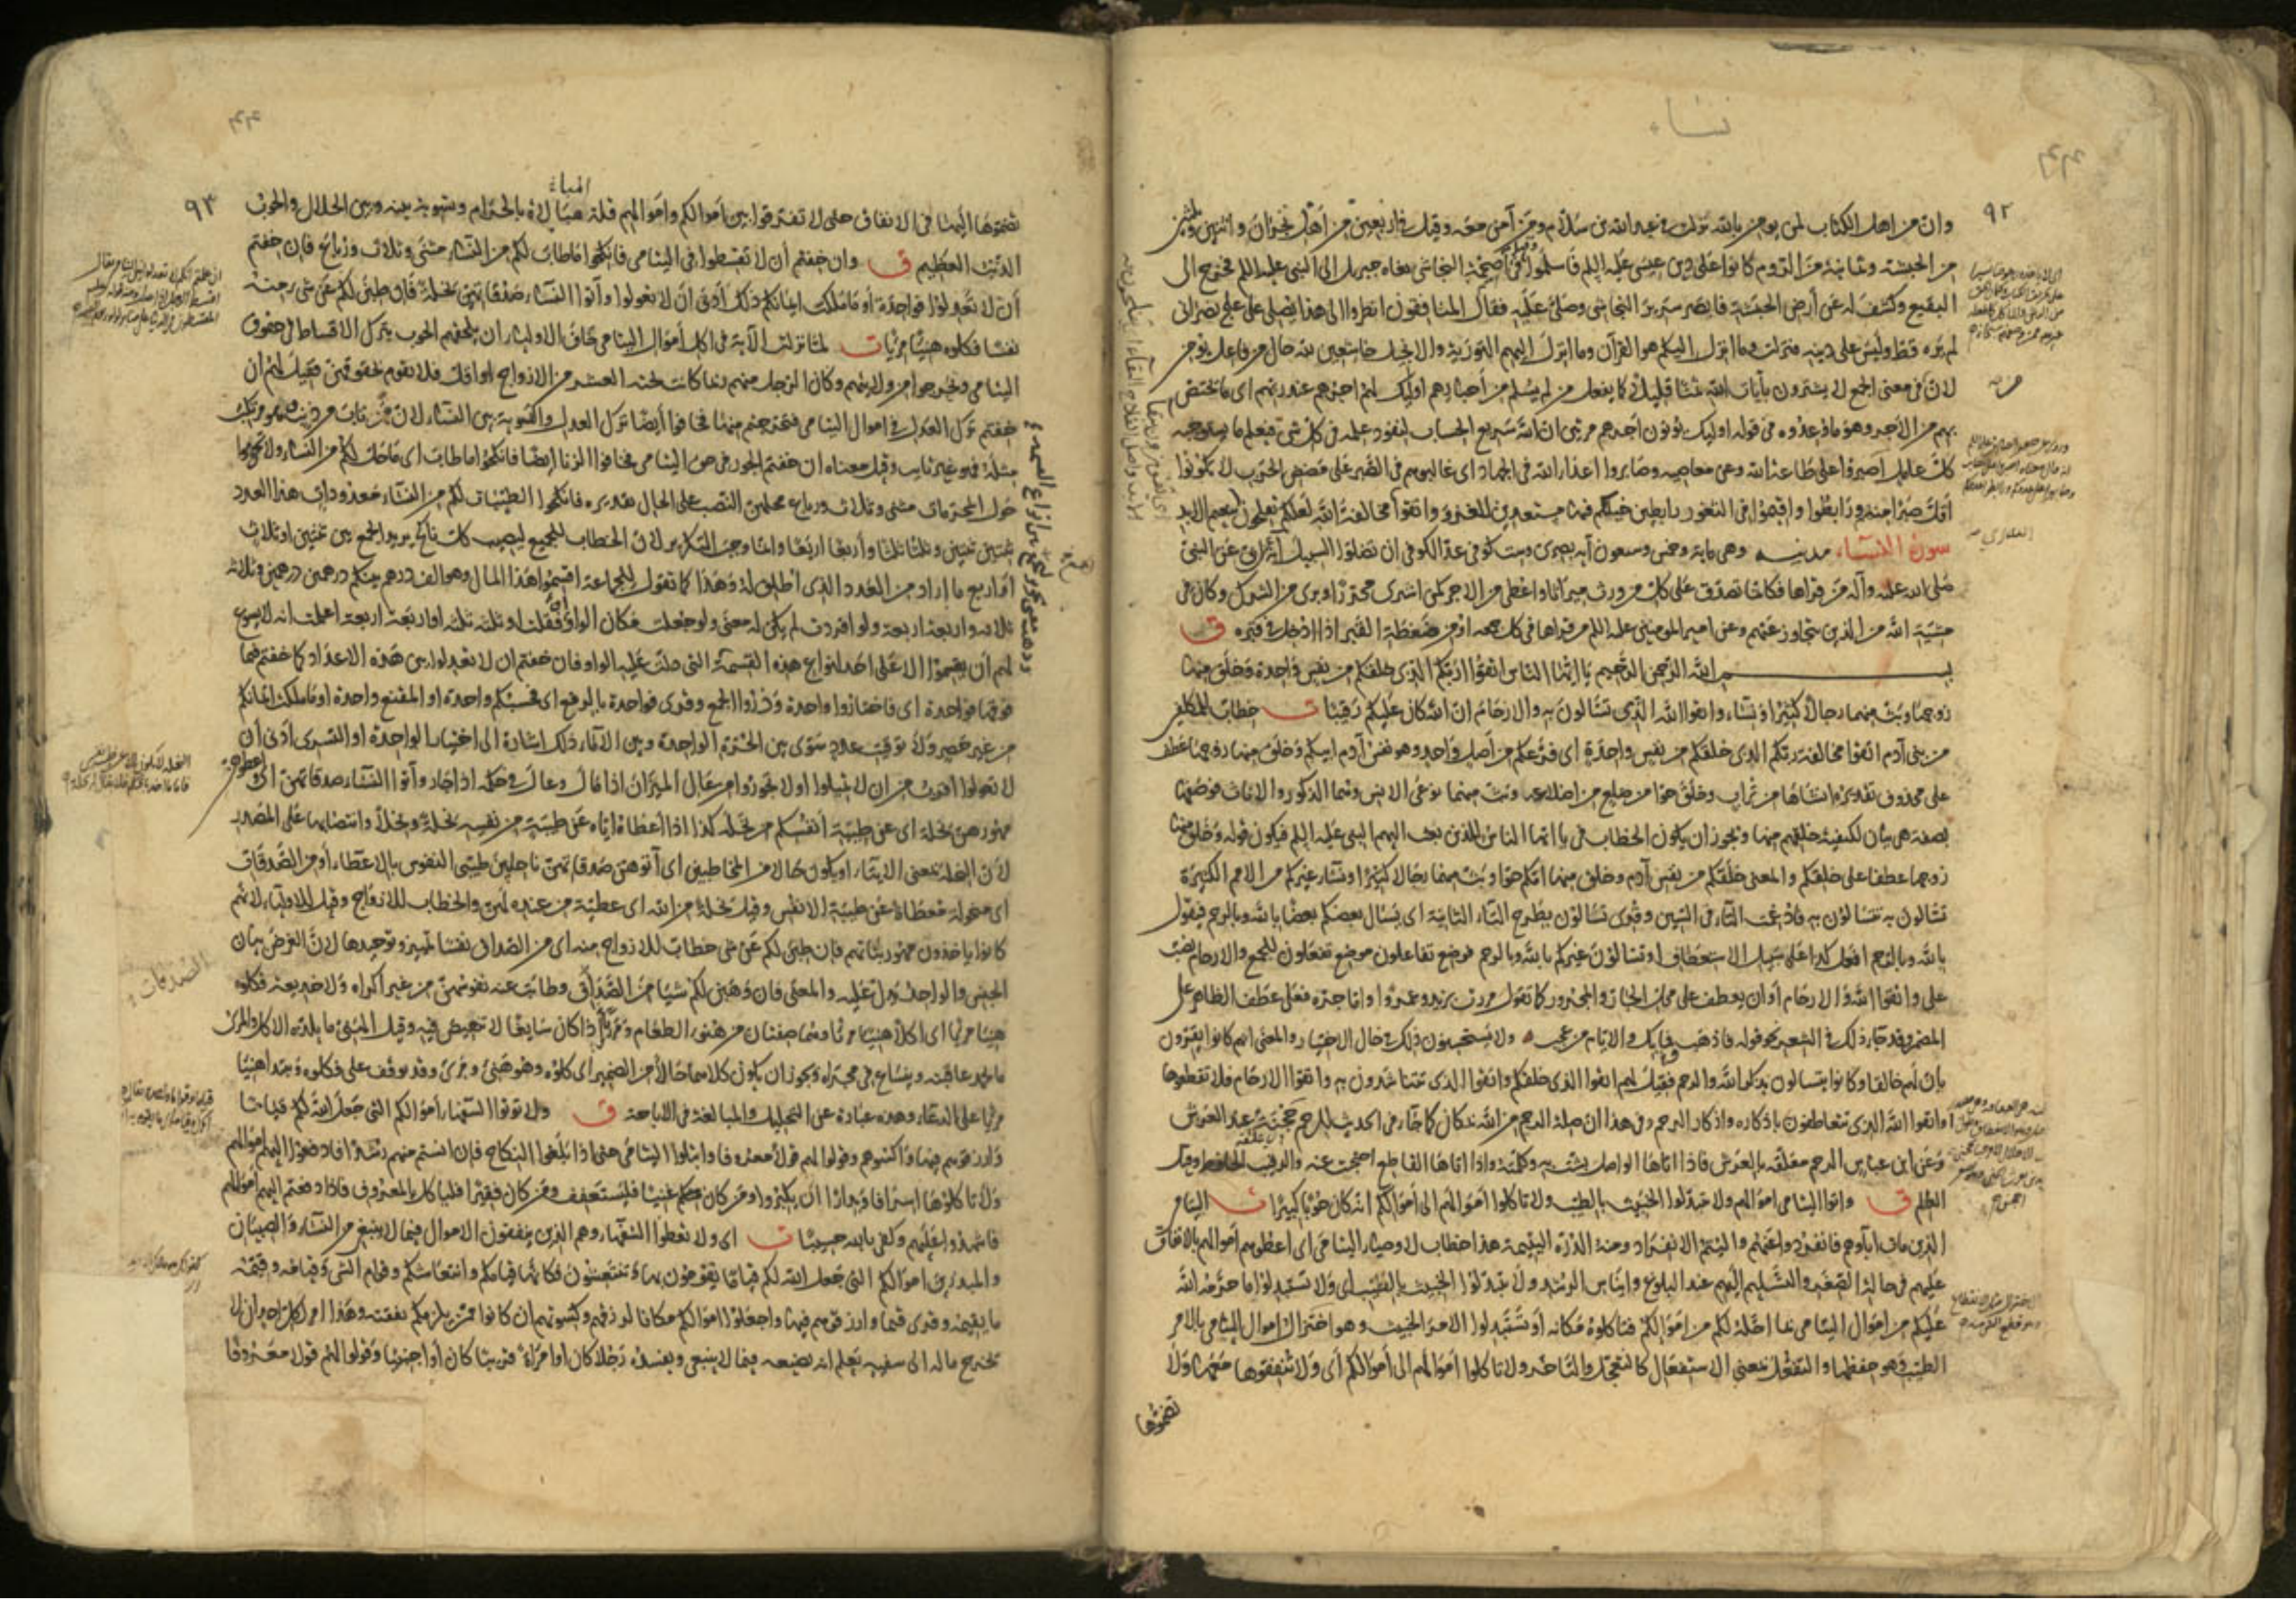 نساء
٩٢
وان من اهل الكتاب لمن يومن بالله نزلت في عبد الله بن سلام ومن آمن معه وقيل في اربعين من اهل نجران واثنين وثلثين
من الحبشة وثمانية من الروم كانوا على دين عيسى عليه السلم فاسلموا وقيل في اصحمة النجاشي نعاه جبريل الى النبي عليه السلم فخرج الى
البقيع وكشف له عن أرض الحبشة فابصر سرير النجاشي وصلى عليه فقال المنافقون انظروا الى هذا يصلي على علج نصراني
لم يره قط وليس على دينه فنزلت وما انزل اليكم هو القرآن وما انزل اليهم التورية والانجيل خاشعين لله حال من فاعل يومن
لان في معنى الجمع لا يشترون بآيات الله ثمنا قليلا كما يفعل من لم يسلم من أحبارهم اوليك لهم اجرهم عند ربهم اي ما يختص
بهم من الاجر وهو ما وعدوه في قوله اوليك يؤتون أجرهم مرتين ان الله سريع الحساب لنفوذ علمه في كل شي فيعلم ما يستوجبه
كل عامل اصبروا على طاعة الله وعن معاصيه وصابروا اعداء الله في الجهاد اى غالبوهم في الصبر على مضض الحرب لا تكونوا
اقل صبرا منهم ورابطوا واقيموا في الثغور رابطين خيلكم فيها مستعدين للغزو واتقوا مخالفة الله لعلكم تفلحون بنعيم الابد
سورة النساء مدنية وهي ماية وخمس وسبعون آية بصرى وست كوفي عد الكوفي ان تضلوا السبيل آية عن النبي
صلى الله عليه وآله من قراها فكانما تصدق على كل من ورث ميراثا واعطى من الاجر كمن اشترى محررا وبرى من الشرك وكان في
مشية الله من الذين يتجاوز عنهم وعن امير المومنين عليه السلم من قراها في كل جمعه اومن ضغطة القبر اذا ادخل في قبره ق
بسم الله الرحمن الرحيم يا ايها الناس اتقوا ربكم الذي خلقكم من نفس واحدة وخلق منها
زوجها وبث منهما رجالا كثيرا ونساء واتقوا الله الذي تسالون به والارحام ان الله كان عليكم رقيبا ت خطاب للمكلفين
من بني آدم اتقوا مخالفة ربكم الذي خلقكم من نفس واحدة اى فرعكم من أصل واحد وهو نفس آدم ابيكم وخلق منها زوجها عطف
على محذوف تقديره انشاها من تراب وخلق حوا من ضلع من اضلاعه وبث منهما نوعى الانس وهما الذكور والاناث فوصفها
بصفة هي بيان لكيفية خلقهم منها ويجوز ان يكون الخطاب في يا ايها الناس للذين بعث اليهم النبي عليه السلم فيكون قوله وخلق منها
زوجها عطفا على خلقكم والمعنى خلقكم من نفس آدم وخلق منها امكم حوا وبث منهما رجالا كثيرا ونساء غيركم من الامم الكثيرة
تسالون به تتسالون به فادغمت التاء في السين وقرى تسالون بطرح التاء الثانية اى يسال بعضكم بعضا بالله وبالرحم فيقول
بالله وبالرحم افعل كذا على سبيل الاستعطاف او تسالون غيركم بالله وبالرحم فوضع تفاعلون موضع تفعلون للجمع والارحام نصب
على واتقوا الله والارحام أو ان يعطف على محل الجار والمجرور كما تقول مررت بزيد وعمروا واما جره فعلى عطف الظاهر على
المضمر وقد جاء ذلك في الشعر نحو قوله فاذهب فما بك والايام من عجب ولا يستحسنون ذلك في حال الاختيار والمعنى انهم كانوا يقرون
بان لهم خالقا وكانوا يتسالون بذكر الله والرحم فقيل لهم اتقوا الذي خلقكم واتقوا الذي تتناشدون به واتقوا الارحام فلا تقطعوها
أو اتقوا الله الذي تتعاطفون باذكاره واذكار الرحم وفي هذا ان صلة الرحم من الله بمكان كما جاء في الحديث للرحم حجنة عند العرش
وعن ابن عباس الرحم معلقة بالعرش فاذا اتاها الواصل بشت به وكلمته واذا اتاها القاطع احتجبت عنه والرقيب الحافظ وقيل
العالم ق واتوا اليتامى اموالهم ولا تتبدلوا الخبيث بالطيب ولا تاكلوا اموالهم الى أموالكم انه كان حوبا كبيرا ت اليتامى
الذين مات آباوهم فانفردوا عنهم واليتم الانفراد ومنه الدرة اليتيمة هذا خطاب لاوصياء اليتامى اى اعطوهم أموالهم بالانفاق
عليهم في حالة الصغر والتسليم اليهم عند البلوغ وايناس الرشد ولا تتبدلوا الخبيث بالطيب اى ولا تستبدلوا ما حرمه الله
عليكم من اموال اليتامى بما احله لكم من اموالكم فتاكلوه مكانه أو تستبدلوا الامر الخبيث وهو اختزال اموال اليتامى بالامر
الطيب وهو حفظها والتفعل بمعنى الاستفعال كالتعجل والتاخر ولا تاكلوا اموالهم الى أموالكم أى ولا تنفقوها معها ولا
تضموها
٩٣
تضموها اليها في الانفاق حتى لا تفرقوا بين اموالكم واموالهم قلة مبالاة بالحرام وتسوية بينه وبين الحلال والحوب
الذنب العظيم ق وان خفتم أن لا تقسطوا في اليتامى فانكحوا ما طاب لكم من النساء مثنى وثلاث ورباع فان خفتم
أن لا تعدلوا فواحدة أو ما ملكت ايمانكم ذلك أدنى ان لا تعولوا وآتوا النساء صدقاتهن نحلة فان طبن لكم عن شي منه
نفسا فكلوه هنيئا مريئا ت لما نزلت الآية في اكل أموال اليتامى خاف الاولياء ان يلحقهم الحوب بترك الاقساط في حقوق
اليتامى وتحرجوا من ولايتهم وكان الرجل منهم ربما كانت تحته العشر من الازواج او اقل فلا يقوم بحقوقهن فقيل لهم ان
خفتم ترك العدل في اموال اليتامى فتحرجتم منها فخافوا أيضا ترك العدل والتسوية بين النساء لان من تاب من ذنب وهو مرتكب
مثله فهو غير تايب وقيل معناه ان خفتم الجور في حق اليتامى فخافوا الزنا ايضا فانكحوا ما طاب اى ما حل لكم من النساء ولا تحوموا
حول المحرمات مثنى وثلاث ورباع محلهن النصب على الحال تقديره فانكحوا الطيبات لكم من النساء معدودات هذا العدد
ثنتين ثنتين وثلثا ثلثا وأربعا اربعا وانما وجب التكرير لان الخطاب للجميع ليصيب كل ناكح يريد الجمع بين ثنتين او ثلاث
أو اربع ما اراد من العدد الذي اطلق له وهذا كما تقول للجماعة اقتسموا هذا المال وهو الف درهم بينكم درهمين درهمين وثلاثة
ثلاثة واربعة اربعة ولو افردت لم يكن له معنى ولو جعلت مكان الواو أو فقلت او ثلثة ثلثة او اربعة اربعة اعلمت انه لا يسوغ
لهم أن يقتسموا الا على احد انواع هذه القسمة التي دلت عليه الواو فان خفتم ان لا تعدلوا بين هذه الاعداد كما خفتم فيما
فوقها فواحدة اى فاختاروا واحدة وذروا الجمع وقرى فواحدة بالرفع اى فحسبكم واحدة او المقنع واحدة او ما ملكت ايمانكم
من غير حصر ولا توقيت عدد سوى بين الحرة الواحدة وبين الاماء ذلك اشارة الى اختيار الواحدة او التسرى أدنى أن
لا تعولوا اقرب من ان لا تميلوا او لا تجوروا من عال الميزان اذا مال وعال في حكمه اذا جار وآتوا النساء صدقاتهن اى
مهورهن نحلة اى عن طيبة أنفسكم من نحله كذا اذا أعطاه اياه عن طيبة من نفسه نحلة ونحلا وانتصابها على المصدر
لان النحلة بمعنى الايتاء او يكون حالا من المخاطبين اى آتوهن صدقاتهن ناحلين طيبى النفوس بالاعطاء أو من الصدقات
اى منحولة معطاة عن طيبة الانفس وقيل نحلة من الله اى عطية من عنده لهن والخطاب للازواج وقيل للاولياء لانهم
كانوا ياخذون مهور بناتهم فان طبن لكم عن شي خطاب للازواج منه اى من الصداق نفسا تمييز وتوحيدها لان الغرض بيان
الجنس والواحد يدل عليه والمعنى فان وهبن لكم شيا من الصداق وطابت عنه نفوسهن من غير اكراه ولا خديعة فكلوه
هنيئا مريئا اى اكلا هنيئا مريئا وهما صفتان من هنوء الطعام ومرؤ اذا كان سايغا لا تنغيص فيه وقيل الهنى ما يلذه الاكل والمرى
ما يحمد عاقبته وينساغ في مجراه ويجوز ان يكون كلاهما حالا من الضمير اى كلوه وهو هنى ومرى وقد يوقف على فكلوه ويبتدا هنيئا
مريئا على الدعاء وهذه عبادة عن التحليل والمبالغة في الاباحة ق ولا توتوا السفهاء أموالكم التي جعل الله لكم قياما
وارزقوهم فيها واكسوهم وقولوا لهم قولا معروفا وابتلوا اليتامى حتى اذا بلغوا النكاح فان انستم منهم رشدا فادفعوا اليهم اموالهم
ولا تاكلوها اسرافا وبدارا ان يكبروا ومن كان غنيا فليستعفف ومن كان فقيرا فلياكل بالمعروف فاذا دفعتم اليهم اموالهم
فاشهدوا عليهم وكفى بالله حسيبا ت اى ولا تعطوا السفهاء وهم الذين ينفقون الاموال فيما لا ينبغي من النساء والصبيان
والمبذرين اموالكم التي جعل الله لكم قياما تقومون بها وتنتعشون فكانها قيامكم وانتعاشكم وقوام الشى وقيامه وقيمته
ما يقيمه وقرى قيما وارزقوهم فيها واجعلوا اموالكم مكانا لرزقهم وكسوتهم ان كانوا ممن يلزمكم نفقته وهذا امر لكل احد ان لا
يخرج ماله الى سفيه يعلم انه يضيعه فيما لا ينبغي ويفسده رجلا كان أو امراة قريبا كان أو اجنبيا وقولوا لهم قولا معروفا